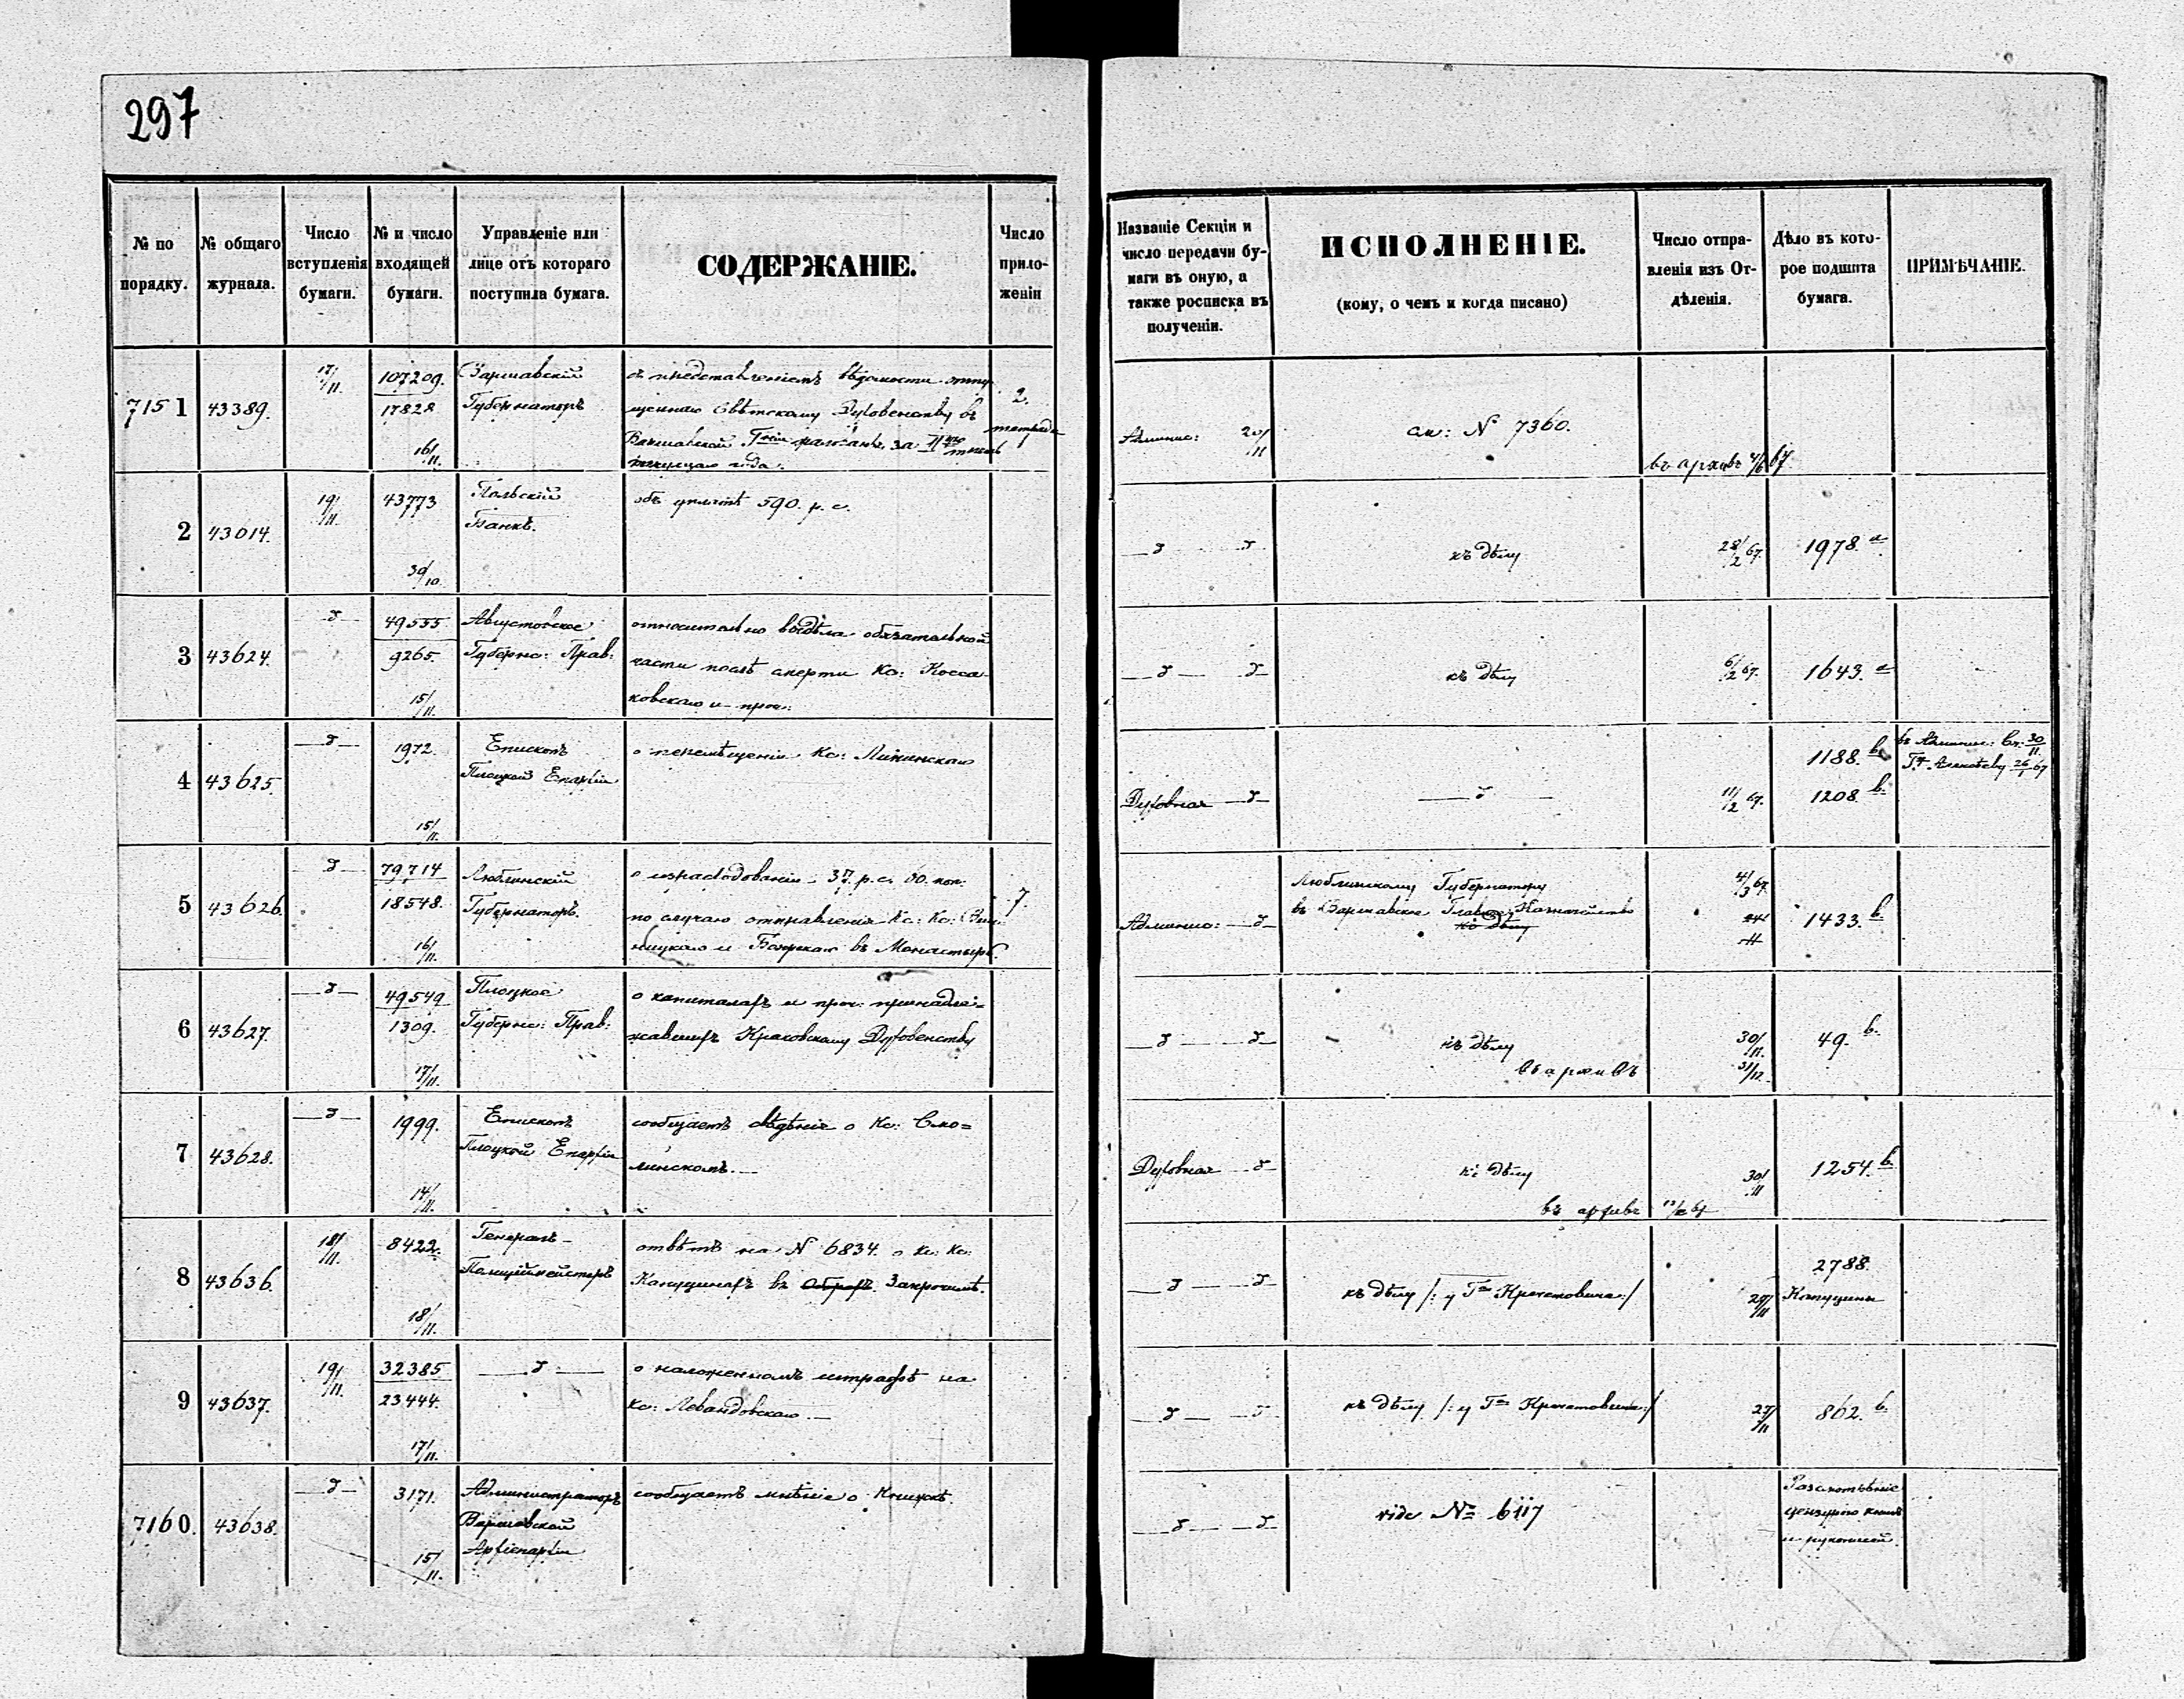 297
№ по порядку.
№ общаго журнала.
Число вступленія бумаги.
№ и число входящей бумаги.
Управленіе или лице отъ котораго поступила бумага.
СОДЕРЖАНІЕ.
Число прило- женій
Названіе Секціи и число передачи бу- маги въ оную, а также росписка въ полученіи.
ИСПОЛНЕНІЕ.
(кому, о чемъ и когда писано)
Число отпра- вленія изъ От- дѣленія.
Дѣло въ кото- рое подшита бумага.
ПРИМѢЧАНІЕ.
7151 43389. 17/11. 107209. 17828 16/11. Варшавскій Губернаторъ
съ представленіемъ вѣдомости отпу-
щеннаго Свѣтскому Духовенству въ
Варшавской Гніи жалованья за II
текущаго года.
2.
Админис: 20/11 см: № 7360. въ архивъ 4/6 67.
2 43014. 19/11. 43773 30/10 Польскій Банкъ. объ уплатѣ 590. р. с.
къ дѣлу 28/2 67. 1978. а
3 43624. 49555 9265. 15/11. Августовское Губернс: Прав:
относительно выдѣла обязательной
части послѣ смерти Кс: Косса-
ковскаго и проч:
къ дѣлу 6/2 67. 1643. а
4 43625. 1972. 15/11. Епископъ Плоцкой Епархіи о перемѣщеніи Кс:
Духовная 11/2 67. 1188. в. 1208. в.
въ Админис: 30/11
26/1 67
5 43626. 79714 18548. 16/11. Люблинскій Губернаторъ.
о израсходованіи 37. р. с. 60. коп:
по случаю отправленія Кс: Кс:
и въ Монастырь.
7.
Админис: Люблинскому Губернатору
въ Варшавское Главное Казначейство
къ дѣлу
4/3 67. 1433. в.
6 43627. 49549 1309. 17/11. Плоцкое Губернс: Прав:
о капиталахъ и проч: принадле-
жавшихъ Краковскому Духовенству
къ дѣлу 30/11. 49. в.
въ архивъ 31/12.
7 43628. 1999. 14/11. Епископъ Плоцкой Епархіи
сообщаетъ свѣдѣніе о Кс: Смо=
линскомъ.
Духовная къ дѣлу 30/11 1254. в.
въ архивъ
8 43636. 18/11. 8422. 18/11. Генералъ- Полиціймейстеръ
отвѣтъ на № 6834. о Кс: Кс:
Капуцинахъ въ Закрочимѣ.
къ дѣлу /: у Гна Кречетовича :/ 29/11 2788. Капуцины
9 43637. 19/11. 32385 23444. 17/11.
о наложенномъ штрафѣ на
Кс: Левандовскаго.
къ дѣлу /: у Гна Кречетовича :/ 27/11 862. в.
7160. 43638. 3171. 15/11. Администраторъ Варшавской Архіепархіи
сообщаетъ мнѣніе о Книжкѣ.
vide № 6117
и рукописей.